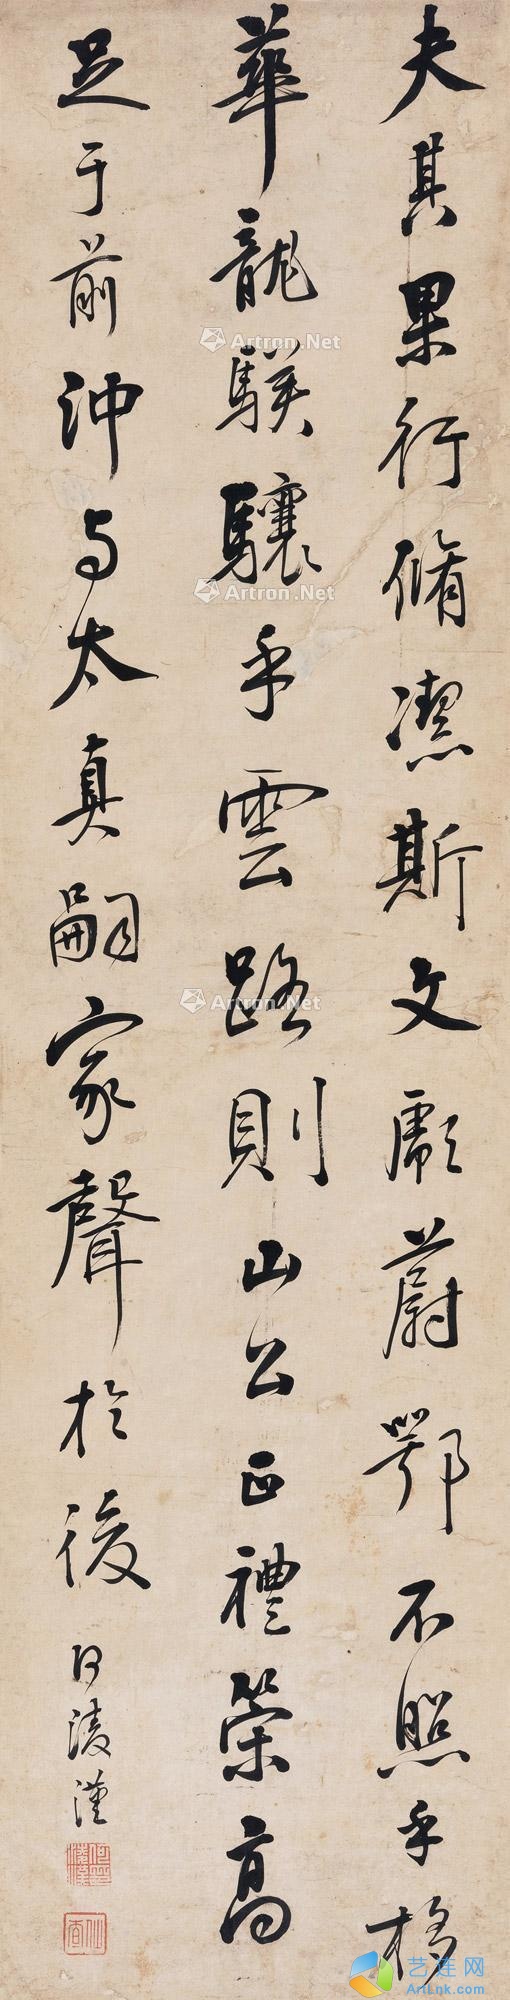 夫其果行脩潔斯文彪蔚鄂不照乎移
華龍驥驤乎雲路則山公正禮策高
足于前沖与太真嗣家聲於後
何凌漢
Artron.Net
Artron.Net
Artron.Net
艺连网
ArtLnk.com